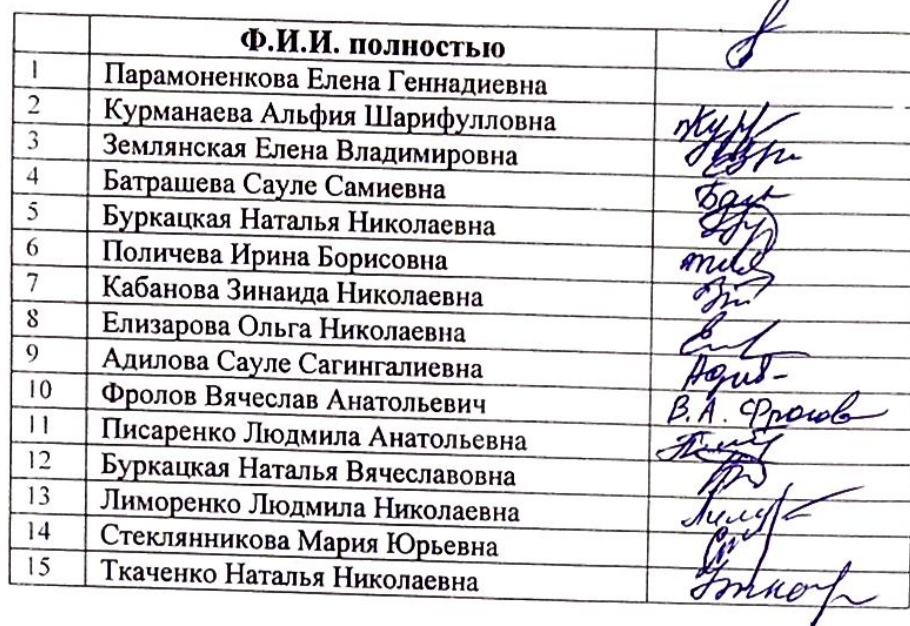 Ф.И.И. полностью
1 Парамоненкова Елена Геннадиевна
2 Курманаева Альфия Шарифулловна
3 Землянская Елена Владимировна
4 Батрашева Сауле Самиевна
5 Буркацкая Наталья Николаевна
6 Поличева Ирина Борисовна
7 Кабанова Зинаида Николаевна
8 Елизарова Ольга Николаевна
9 Адилова Сауле Сагингалиевна
10 Фролов Вячеслав Анатольевич В.А. Фролов
11 Писаренко Людмила Анатольевна
12 Буркацкая Наталья Вячеславовна
13 Лиморенко Людмила Николаевна
14 Стеклянникова Мария Юрьевна
15 Ткаченко Наталья Николаевна